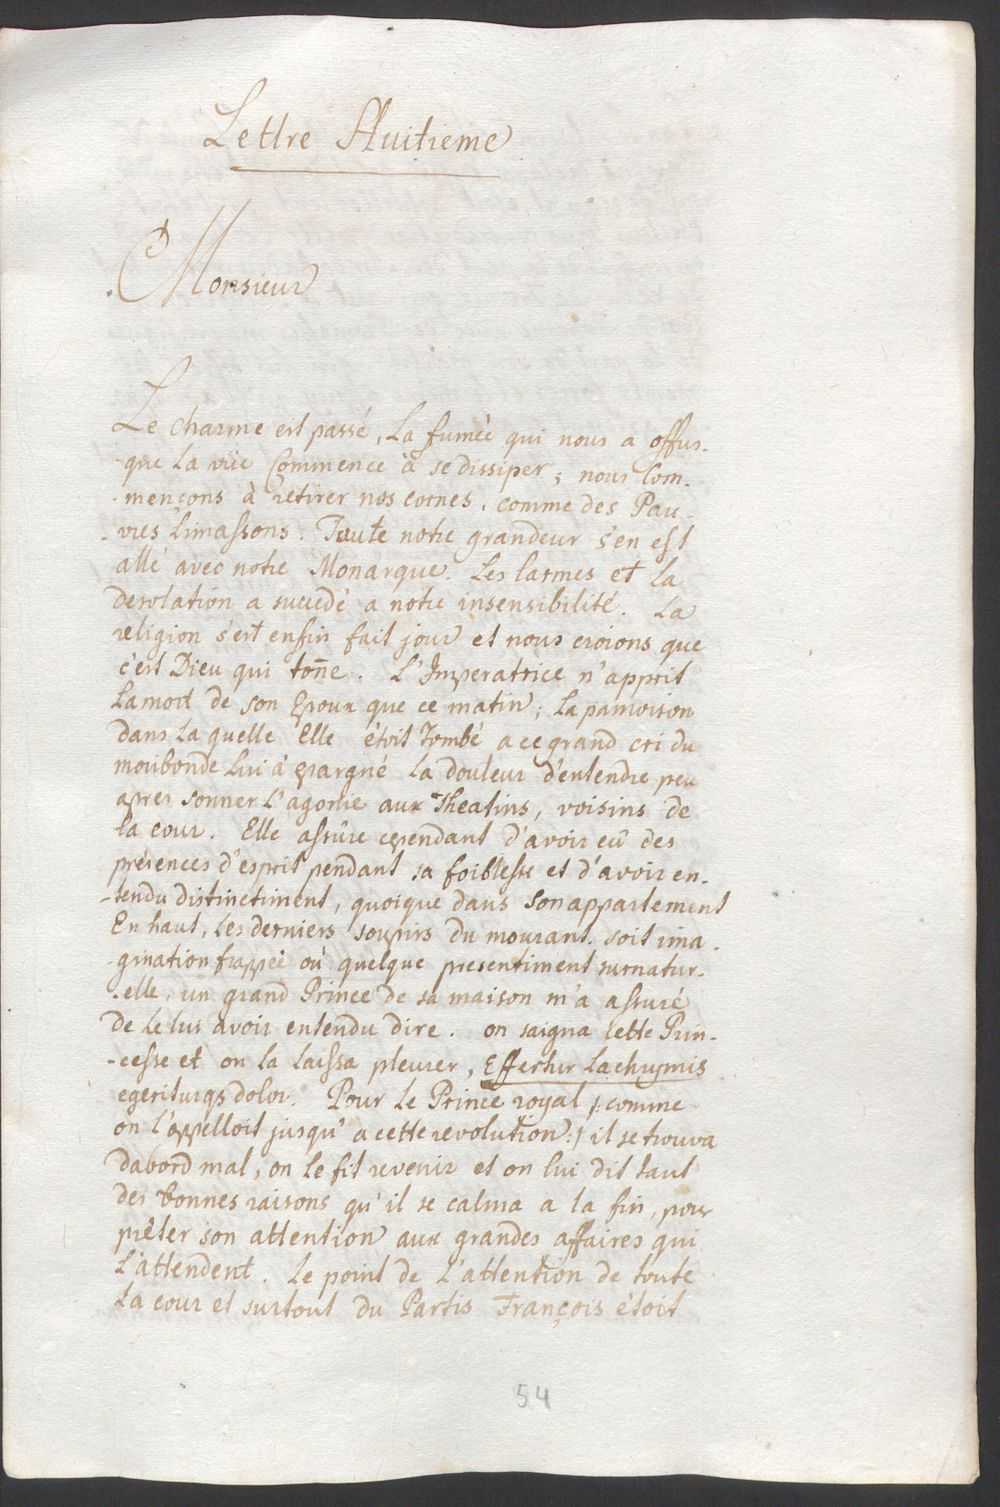 Lettre Huitieme
Monsieur
Le charme est passé, La fumée qui nous a offus-
-que La vüe Commence à se dissiper; nous Com-
-mençons à retirer nos cornes, comme des Pau-
-vres Limassons. Toute notre grandeur s'en est
allé avec notre Monarque. Les larmes et la
desolation a succedé a notre insensibilité. La
religion s'est enfin fait jour et nous croions que
c'est Dieu qui toñe. L'Imperatrice n'apprit
La mort de son Epoux que ce matin; La pamoison
dans La quelle Elle étoit Tombé a ce grand cri du
moribonde Lui a épargné la douleur d'entendre peu
apres sonner L'agonie aux Theatins, voisins de
la cour. Elle assûre cependant d'avoir eû des
présences d'esprit pendant sa foiblesse et d'avoir en-
-tendu distinctiment, quoique dans Son appartement
En haut, Les derniers soupirs du mourant. soit ima-
-gination frappée où quelque presentiment surnatur-
-elle, un grand Prince de sa maison m'a assuré
de Le lui avoir entendu dire. on saigna cette Prin-
-cesse et on la laissa pleurer, Effertur Lachrymis
egeriturqs dolor. Pour Le Prince royal /: comme
on l'appelloit jusqu'a cette revolution :/ il se trouva
dabord mal, on Le fit revenir et on lui dit tant
des bonnes raisons qu'il se calma a la fin, pour
prêter son attention aux grandes affaires qui
L'attendent. Le point de L'attention de toute
La cour et surtout du Partis François étoit
54